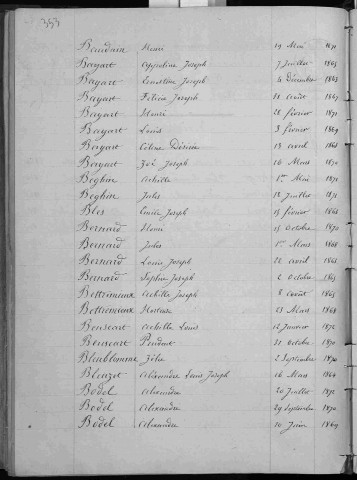 353
Bauduin Henri 19 Mai 1871
Bayart Appoline Joseph 7 Juillet 1865
Bayart Ernestine Joseph 6 Décembre 1863
Bayart Félicie Joseph 11 Août 1867
Bayart Henri 28 février 1871
Bayart Louis 3 février 1869
Bayart Céline Désirée 18 avril 1863
Bayart Zoé Joseph 16 Mars 1870
Beghin Achille 1er Mai 1871
Beghin Jules 12 Juillet 1871
Bles Emile Joseph 15 février 1868
Bernard Henri 15 Octobre 1870
Bernard Jules 1er Mars 1868
Bernard Louis Joseph 22 avril 1863
Bernard Sophie Joseph 2 Octobre 1863
Bettremieux Achille Joseph 8 Août 1865
Bettremieux Hortense 23 Mars 1868
Beuscart Achille Louis 12 Janvier 1872
Beuscart Prudent 31 Octobre 1870
Bleublomme Zélie 2 Septembre 1870
Bleuzet Alexandre Louis Joseph 16 Mars 1864
Bodel Alexandre 20 Juillet 1872
Bodel Alexandre 29 Septembre 1870
Bodel Alexandre 10 Juin 1869